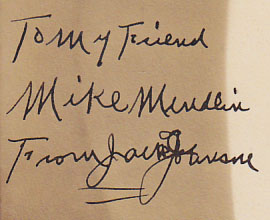 To My Friend
Mike Mendlein
From Jack Johnson